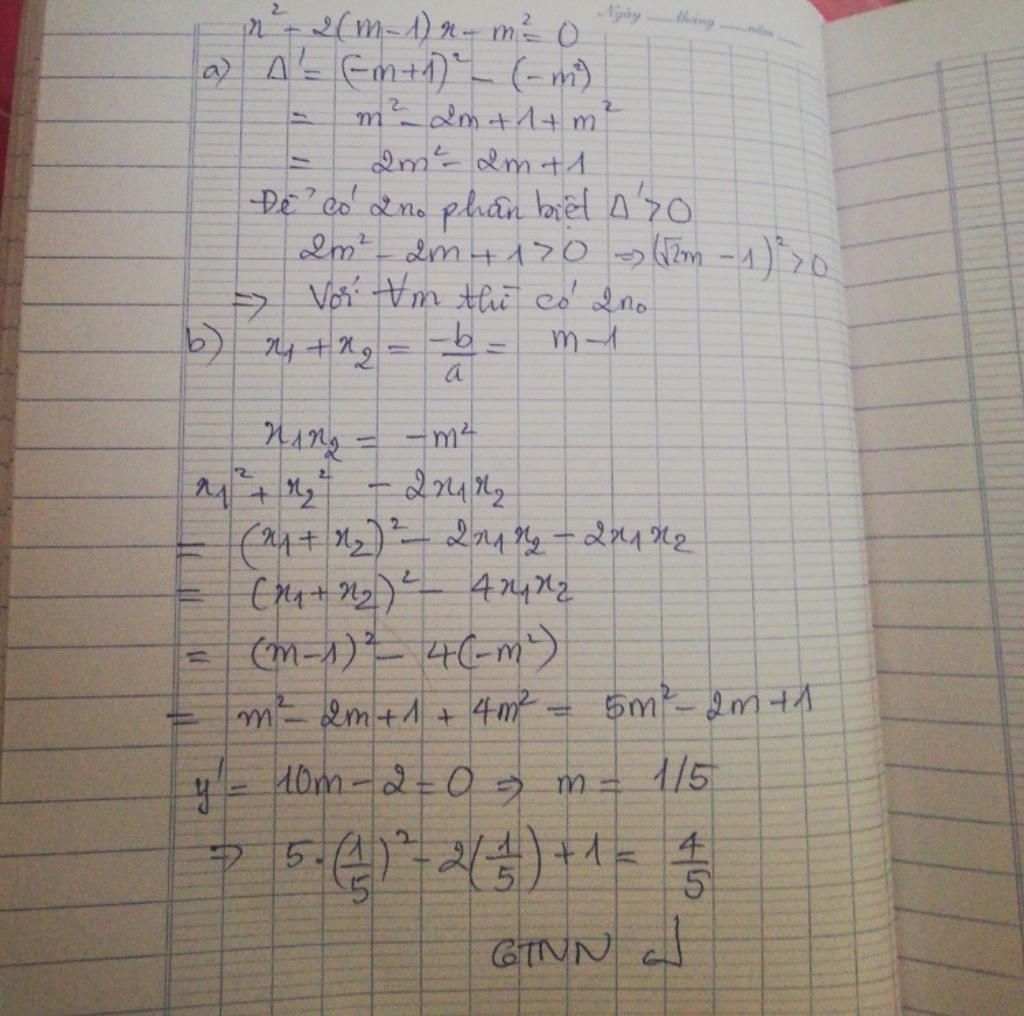 Ngày ...... tháng ...... năm ......
x² - 2(m-1)x - m² = 0
a) Δ' = (-m+1)² - (-m²)
= m² - 2m + 1 + m²
= 2m² - 2m + 1
Để có 2no phân biệt Δ' > 0
2m² - 2m + 1 > 0 ⇒ (√2m - 1)² > 0
⇒ Với ∀m thì có 2no
b) x₁ + x₂ = -b/a = m-1
x₁x₂ = -m²
x₁² + x₂² - 2x₁x₂
= (x₁ + x₂)² - 2x₁x₂ - 2x₁x₂
= (x₁+x₂)² - 4x₁x₂
= (m-1)² - 4(-m²)
= m² - 2m + 1 + 4m² = 5m² - 2m + 1
y' = 10m - 2 = 0 ⇒ m = 1/5
⇒ 5·(1/5)² - 2(1/5) + 1 = 4/5
GTNN